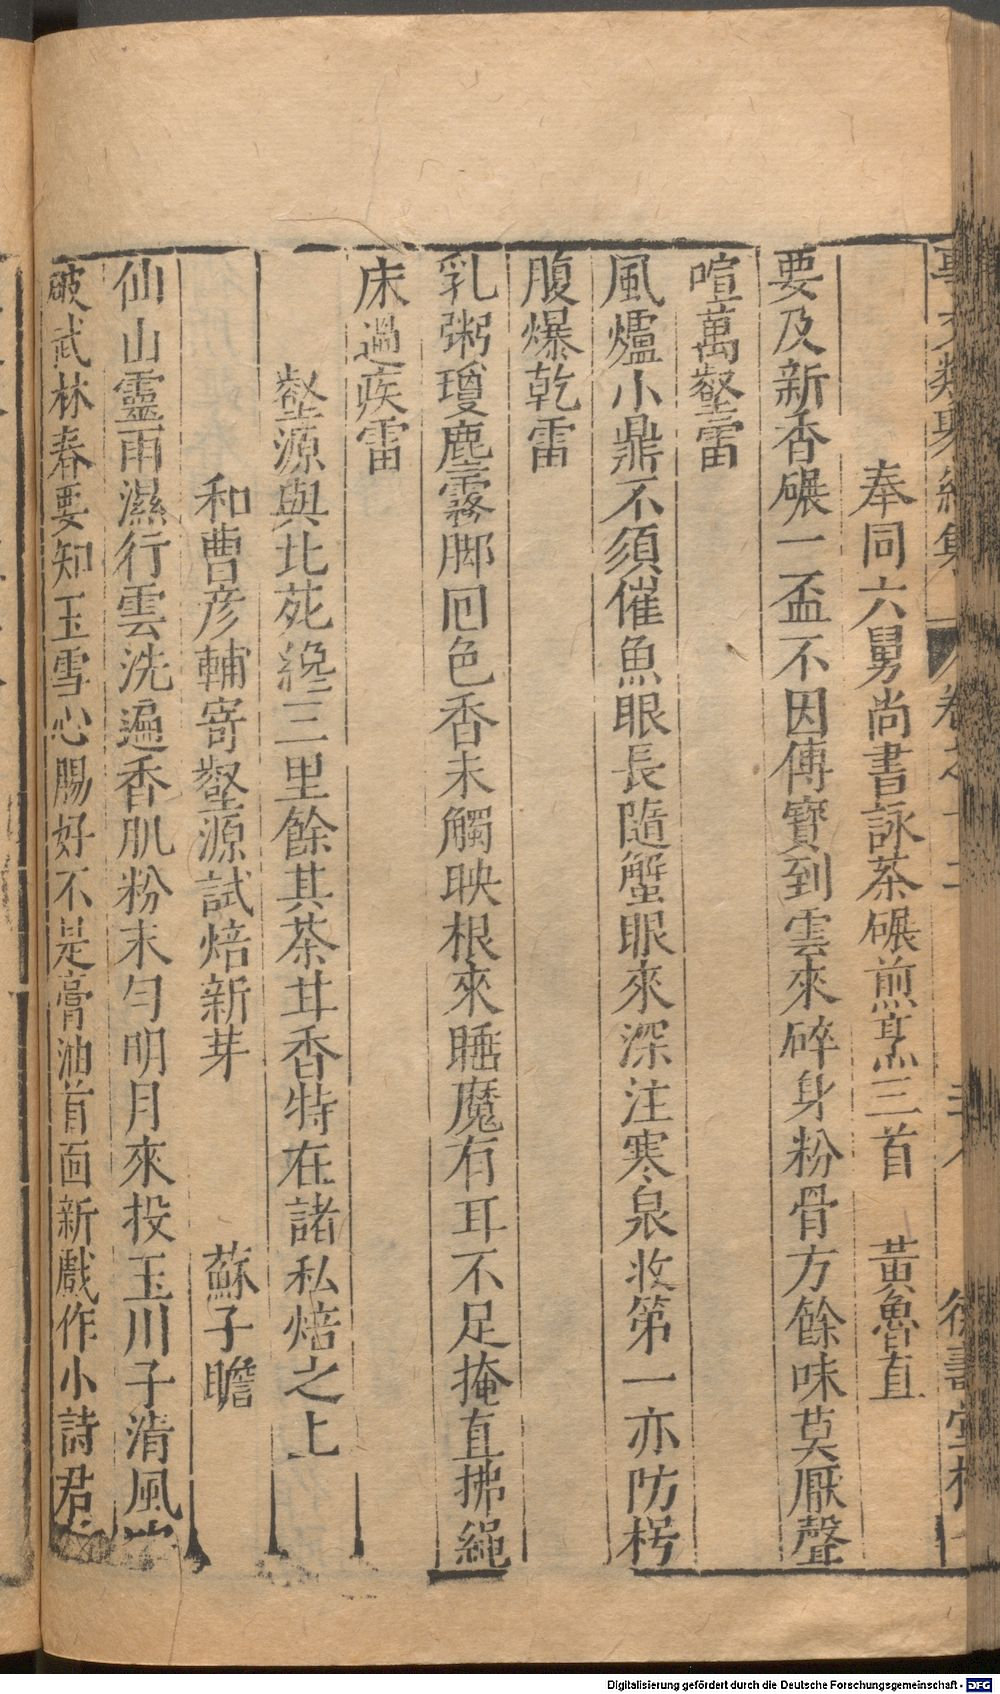 奉同六舅尚書詠茶碾煎烹三首　黃魯直
要及新香碾一盃不因傳寶到雲來碎身粉骨方餘味莫厭聲
喧萬壑雷
風爐小鼎不須催魚眼長隨蟹眼來深注寒泉收第一亦防枵
腹爆乾雷
乳粥瓊塵霧脚回色香未觸映根來睡魔有耳不足掩直拂繩
床過疾雷
壑源與北苑纔三里餘其茶甘香特在諸私焙之上
和曹彥輔寄壑源試焙新芽　蘇子瞻
仙山靈雨濕行雲洗遍香肌粉末勻明月來投玉川子清風
破武林春要知玉雪心腸好不是膏油首面新戲作小詩君
Digitalisierung gefördert durch die Deutsche Forschungsgemeinschaft - DFG